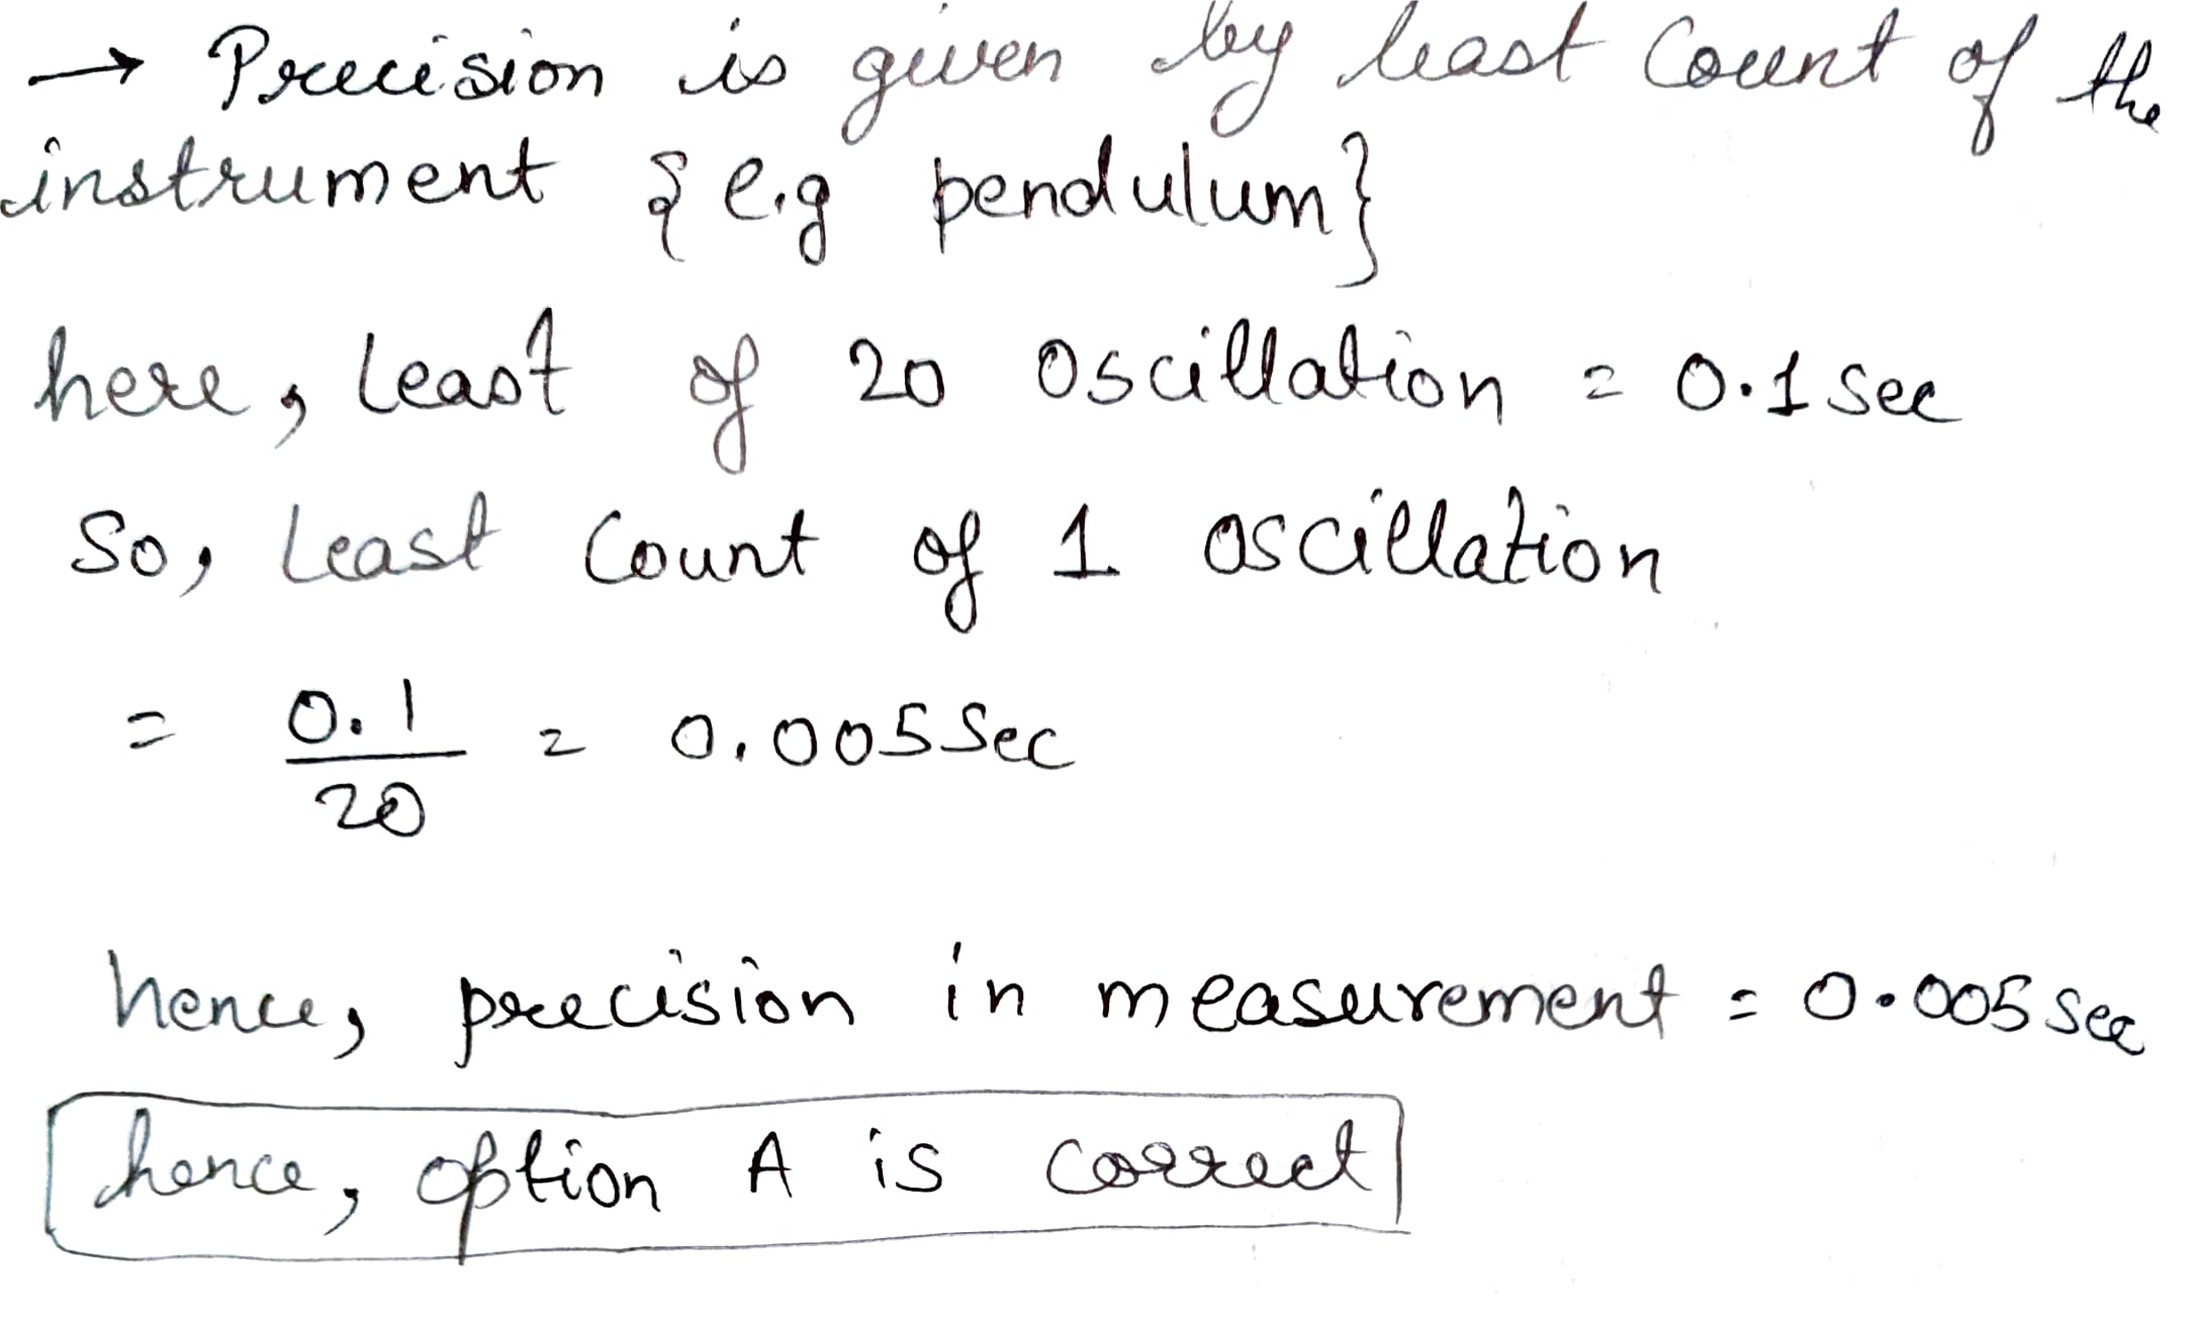 → Precision is given by least Count of the
instrument {e.g pendulum}
here, least of 20 Oscillation = 0.1 sec
So, least Count of 1 oscillation
= 0.1/20 = 0.005 Sec
hence, precision in measurement = 0.005 sec
hence, option A is correct